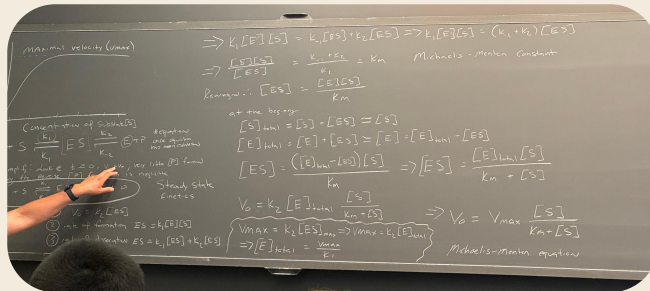 maximal velocity (Vmax)
Concentration of Substrate[S]
+ S K₁ [ES] K₂ E+P
K₋₂
Steady State
Kinetics
① V₀ = K₂[ES]
② rate of formation ES = K₁[E][S]
③ ES = K₋₁[ES] + K₂[ES]
⇒ K₁[E][S] = K₋₁[ES] + K₂[ES] ⇒ K₁[E][S] = (K₋₁ + K₂)[ES]
⇒ [E][S] / [ES] = K₋₁ + K₂ / K₁ = Km Michaelis-Menten Constant
[ES] = [E][S] / Km
at the
[S]total = [S] + [ES] ≅ [S]
[E]total = [E] + [ES] ⇒ [E] = [E]total - [ES]
[ES] = ([E]total-[ES])[S] / Km ⇒ [ES] = [E]total [S] / Km + [S]
V₀ = K₂[E]total [S] / Km+[S] ⇒ V₀ = Vmax [S] / Km+[S]
Vmax = K₂[ES]max ⇒ Vmax = K₂[E]total
⇒ [E]total = Vmax / K₂
Michaelis-Menten equation